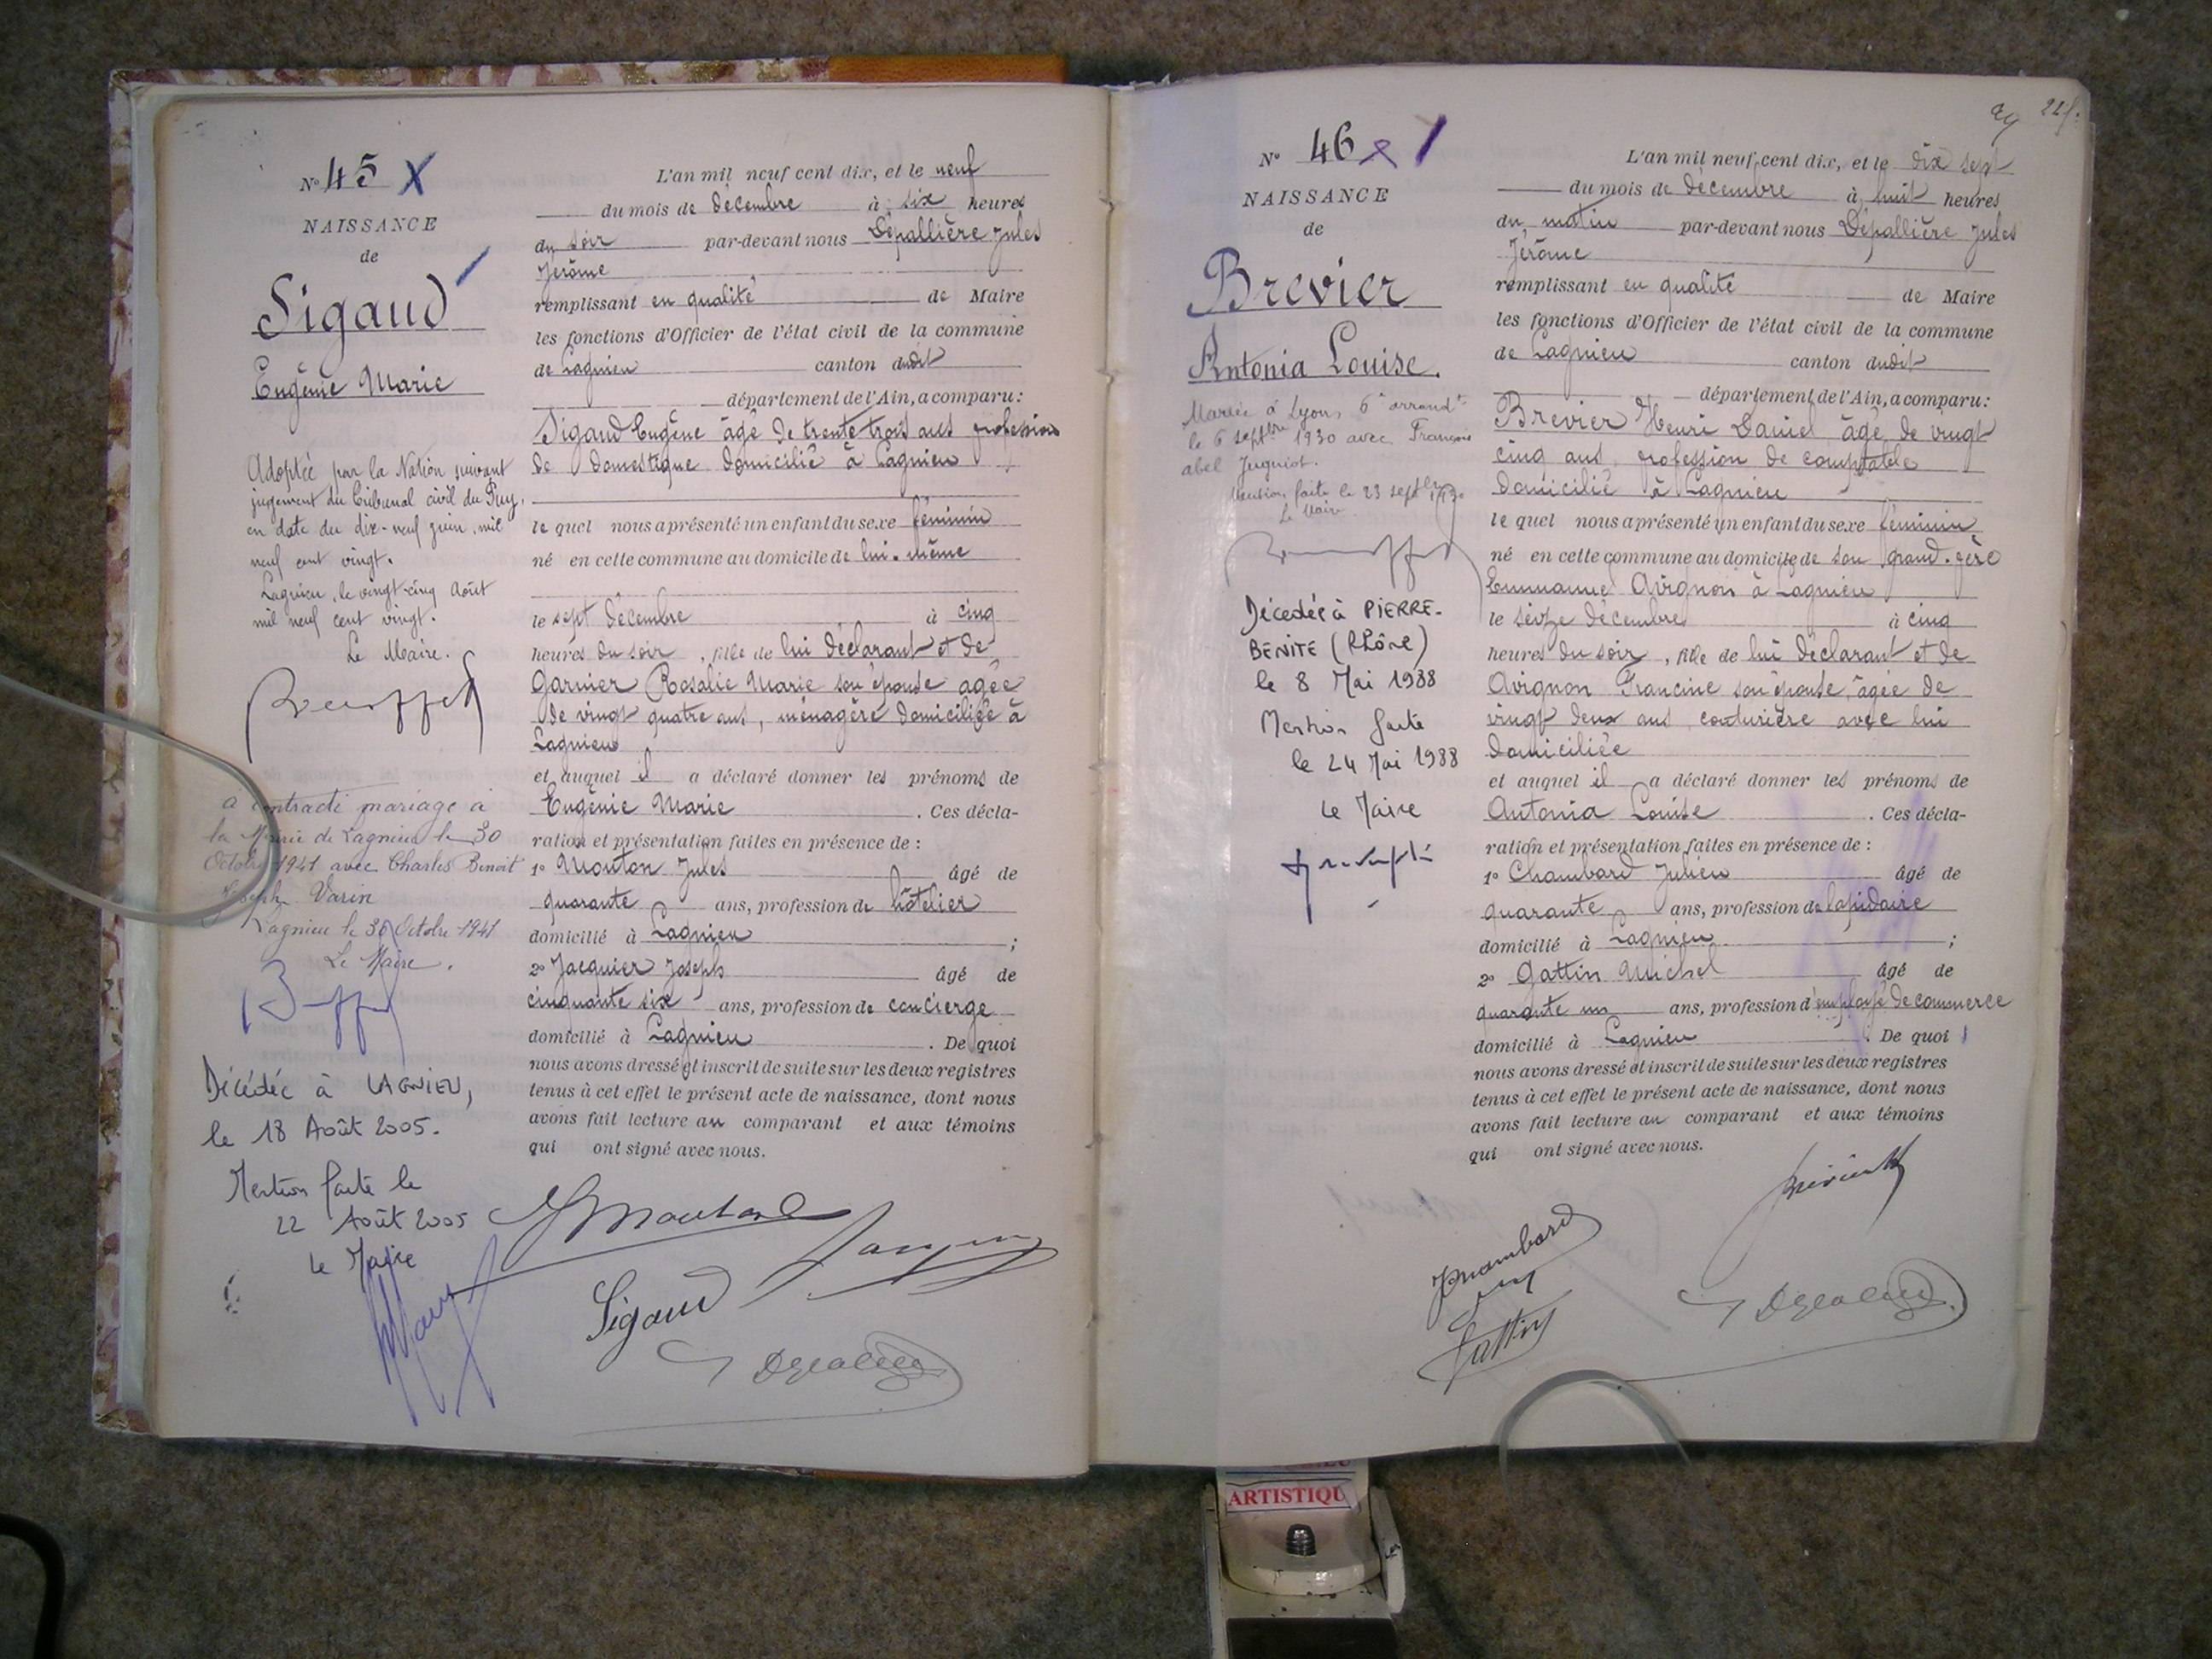 N° 45 X
NAISSANCE
de
Sigaud
Eugénie Marie
Adoptée par la Nation suivant
jugement du Tribunal civil du Puy,
en date du dix-neuf juin mil
neuf cent vingt.
Lagnieu, le vingt-cinq Août
mil neuf cent vingt.
Le Maire.
a contracté mariage à
la Mairie de Lagnieu le 30
Octobre 1941 avec Charles Benoit
Joseph Varin
Lagnieu le 30 Octobre 1941
Le Maire.
Décédée à LAGNIEU,
le 18 Août 2005.
Mention faite le
22 Août 2005
le Maire
L'an mil neuf cent dix, et le neuf
du mois de décembre à six heures
du soir par-devant nous Dépallière Jules
Jérôme
remplissant en qualité de Maire
les fonctions d'Officier de l'état civil de la commune
de Lagnieu canton dudit
département de l'Ain, a comparu :
Sigaud Eugène âgé de trente trois ans profession
de domestique domicilié à Lagnieu
le quel nous a présenté un enfant du sexe féminin
né en cette commune au domicile de lui-même
le sept décembre à cinq
heures du soir, fille de lui déclarant et de
Garnier Rosalie Marie son épouse âgée
de vingt quatre ans, ménagère domiciliée à
Lagnieu
et auquel il a déclaré donner les prénoms de
Eugénie Marie . Ces décla-
ration et présentation faites en présence de :
1° Mouton Jules âgé de
quarante ans, profession de hôtelier
domicilié à Lagnieu ;
2° Jacquier Joseph âgé de
cinquante six ans, profession de concierge
domicilié à Lagnieu . De quoi
nous avons dressé et inscrit de suite sur les deux registres
tenus à cet effet le présent acte de naissance, dont nous
avons fait lecture au comparant et aux témoins
qui ont signé avec nous.
Sigaud
225.
N° 46
NAISSANCE
de
Brevier
Antonia Louise.
Mariée à Lyon, 6e arrondt
le 6 septbre 1930 avec François
abel Juguiot.
Mention faite le 23 septbre 1930
Le Maire
Décédée à PIERRE-
BENITE (RHône)
le 8 Mai 1988
Mention faite
le 24 Mai 1988
Le Maire
L'an mil neuf cent dix, et le dix sept
du mois de décembre à huit heures
du matin par-devant nous Dépallière Jules
Jérôme
remplissant en qualité de Maire
les fonctions d'Officier de l'état civil de la commune
de Lagnieu canton dudit
département de l'Ain, a comparu :
Brevier Henri Daniel âgé de vingt
cinq ans profession de comptable
domicilié à Lagnieu
le quel nous a présenté un enfant du sexe féminin
né en cette commune au domicile de son grand-père
Emmanuel Avignon à Lagnieu
le seize décembre à cinq
heures du soir, fille de lui déclarant et de
Avignon Francine son épouse, âgée de
vingt deux ans couturière avec lui
domiciliée
et auquel il a déclaré donner les prénoms de
Antonia Louise . Ces décla-
ration et présentation faites en présence de :
1° Chambard Julien âgé de
quarante ans, profession de lapidaire
domicilié à Lagnieu ;
2° Gattin Michel âgé de
quarante un ans, profession d'employé de commerce
domicilié à Lagnieu . De quoi
nous avons dressé et inscrit de suite sur les deux registres
tenus à cet effet le présent acte de naissance, dont nous
avons fait lecture au comparant et aux témoins
qui ont signé avec nous.
Chambard
Gattin
ARTISTIQU